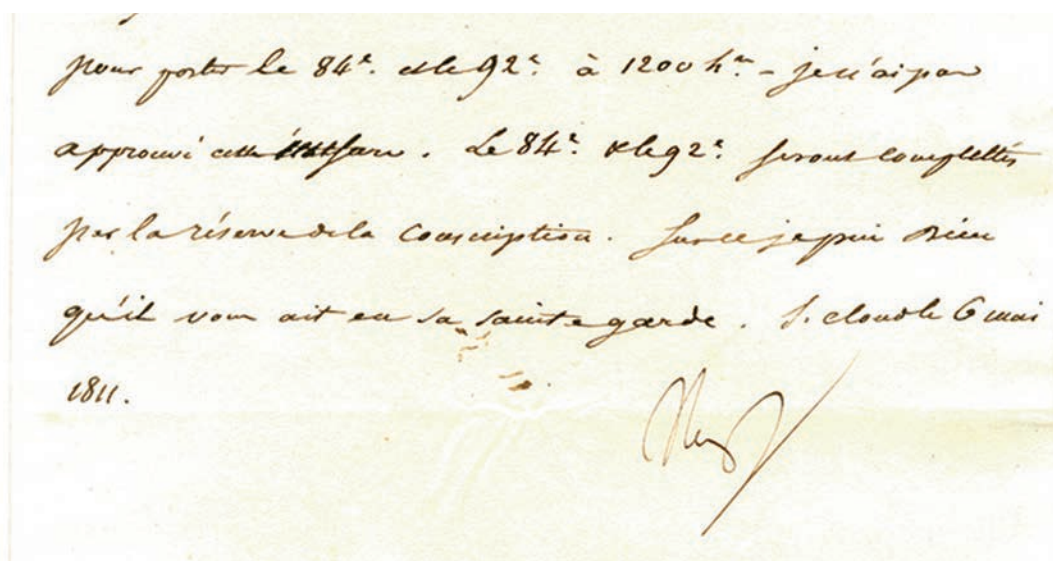 pour porter le 84e. et le 92e. à 1200 hes. - je n'ai pas
approuvé cette mesure. Le 84e. et le 92e. seront complettés
par la réserve de la Conscription. Sur ce je prie Dieu
qu'il vous ait en sa sainte garde. S. cloud le 6 mai
1811.
Nap